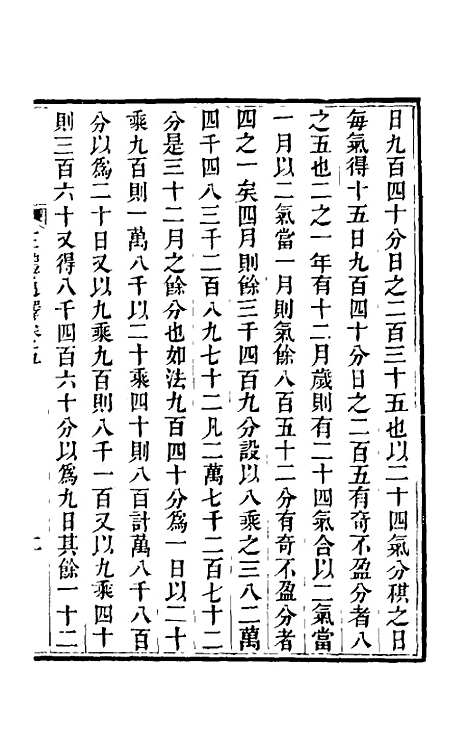 日九百四十分日之二百三十五也以二十四氣分祺之日
每氣得十五日九百四十分日之二百五有奇不盈分者八
之五也二之一年有十二月歲則有二十四氣合以二氣當
一月以二氣當一月則氣餘八百五十二分有奇不盈分者
四之一矣四月則餘三千四百九分設以八乘之三八二萬
四千四八三千二百八九七十二凡二萬七千二百七十二
分是三十二月之餘分也如法九百四十分爲一日以二十
乘九百則一萬八千以二十乘四十則八百計萬八千八百
分以爲二十日又以九乘九百則八千一百又以九乘四十
則三百六十又得八千四百六十分以爲九日其餘一十二
三禮通釋卷五